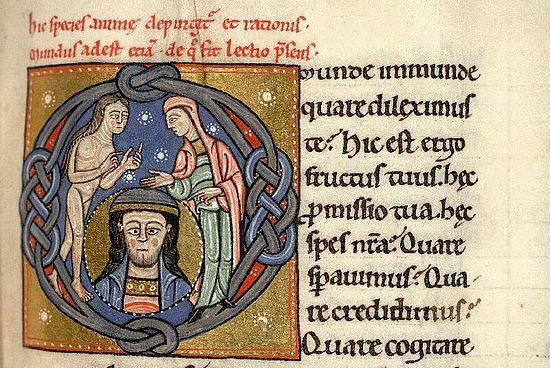 hic species animę depingit᷑ et rationis.
mundus adest etiã. de qͦ fit lectio p̃sens.
O munde immunde
quare dileximus
te? Hic est ergo
fructus tuus. hęc
ꝓmissio tua. hęc
spes nr̃a. Quare
sꝑauimus? Qua-
re credidimus?
Quare cogitare